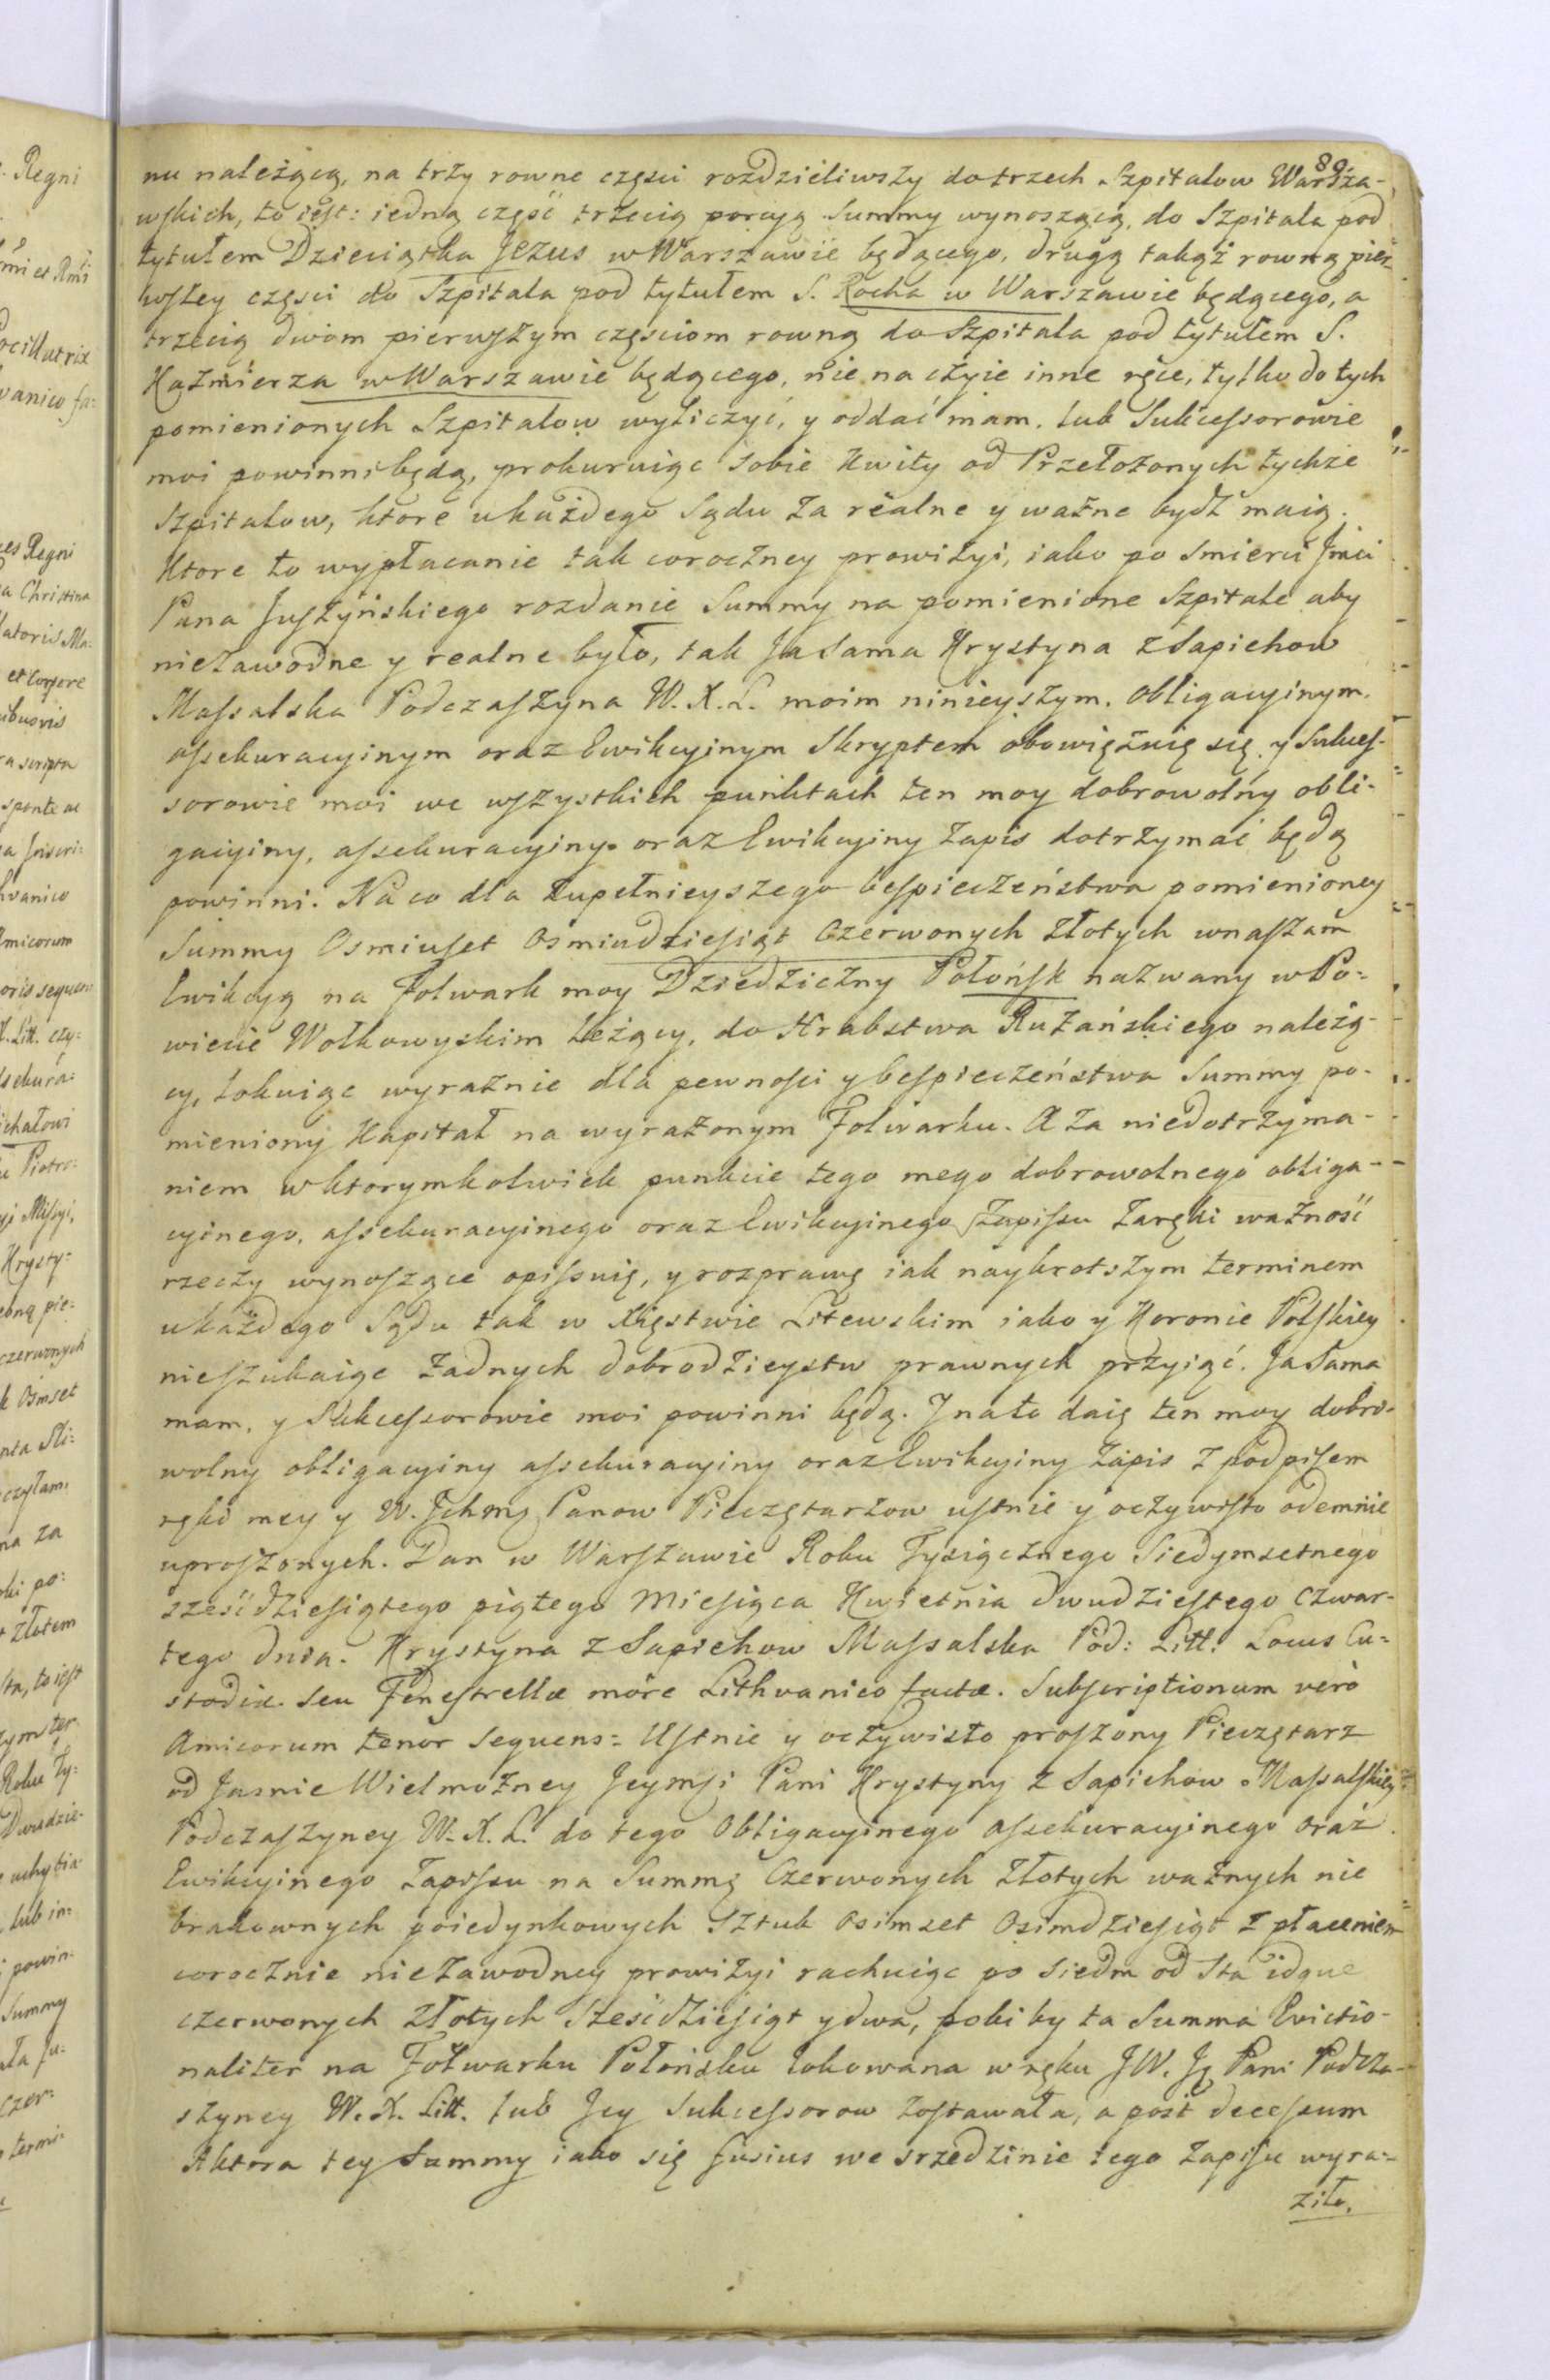 89.
nu należącą, na trzy rowne częsci rozdzieliwszy do trzech Szpitalow Warsza-
wskich, to iest: iedną część trzecią porcyą Summy wynoszącą, do Szpitala pod
tytułem Dzieciątka Jezus w Warszawie będącego, drugą takąż rowną pier-
wszey częsci do Szpitala pod tytułem S. Rocha w Warszawie będącego, a
trzecią dwom pierwszym częsciom rowną do Szpitala pod tytułem S.
Kaźmierza w Warszawie będącego, nie na czyie inne ręce, tylko do tych
pomienionych Szpitalow wyliczyć, y oddać mam, lub Sukcessorowie
moi powinni będą, prokuruiąc sobie Kwity od Przełożonych tychże
Szpitalow, ktore u każdego Sądu za realne y ważne bydź maią.
Ktore to wypłacanie tak coroczney prowizyi, iako po smierci Jmci
Pana Juszyńskiego rozdanie Summy na pomienione Szpitale aby
niezawodne y realne było, tak Ja sama Krystyna z Sapiehow
Massalska Podczaszyna W. X. L. moim ninieyszym, obligacyinym,
assekuracyinym oraz Ewikcyinym Skryptem obowiązuię się, y Sukces-
sorowie moi we wszystkich punktach ten moy dobrowolny obli-
gacyiny, assekuracyiny oraz Ewikcyiny zapis dotrzymać będą
powinni. Na co dla zupełnieyszego bespieczeństwa pomienioney
Summy Osmiuset Osmiudziesiąt Czerwonych Złotych wnaszam
Ewikcyą na Folwark moy Dziedziczny Połońsk nazwany w Po-
wiecie Wołkowyskim leżący, do Hrabstwa Rużańskiego należą-
cy, lokuiąc wyraźnie dla pewnosci y bespieczeństwa Summy po-
mieniony Kapitał na wyrażonym Folwarku. A za niedotrzyma-
niem w ktorymkolwiek punkcie tego mego dobrowolnego obliga-
cyinego, assekuracyinego oraz Ewikcyinego Zapissu zaręki ważność
rzeczy wynoszące opissuię, y rozprawę iak naykrotszym terminem
u każdego Sądu tak w Xięstwie Litewskim iako y Koronie Polskiey
nieszukaiąc żadnych dobrodzieystw prawnych przyiąć. Ja sama
mam, y Sukcessorowie moi powinni będą. I na to daię ten moy dobro-
wolny obligacyiny assekuracyiny oraz Ewikcyiny zapis z podpisem
ręki mey y W. Ichmę Panow Pieczętarzow ustnie y oczywisto odemnie
uproszonych. Dan w Warszawie Roku Tysiącznego Siedymsetnego
sześćdziesiątego piątego Miesiąca Kwietnia dwudziestego czwar-
tego dnia. Krystyna z Sapiehow Massalska Pod: Litt. Locus Cu-
stodiæ seu Fenestrellæ more Lithvanico factæ. Subscriptionum verò
Amicorum tenor sequens: Ustnie y oczywisto proszony Pieczętarz
od Jasnie Wielmożney Jeymsi Pani Krystyny z Sapiehow Massalskiey
Podczaszyney W. X. L. do tego Obligacyinego assekuracyinego oraz
Ewikcyinego Zapissu na Summę Czerwonych Złotych ważnych nie
brakownych poiedynkowych sztuk Osimset Osimdziesiąt z płaceniem
corocznie niezawodney prowizyi rachuiąc po siedm od sta idque
czerwonych złotych sześćdziesiąt y dwa, poki by ta Summa Evictio-
naliter na Folwarku Połońsku lokowana w ręku JW. Ję Pani Podcza-
szyney W. X. Litt. lub Jey Sukcessorow zostawała, a post decessum
Aktora tey Summy iako się fusius we srzedzinie tego Zapisu wyra-
ziło.